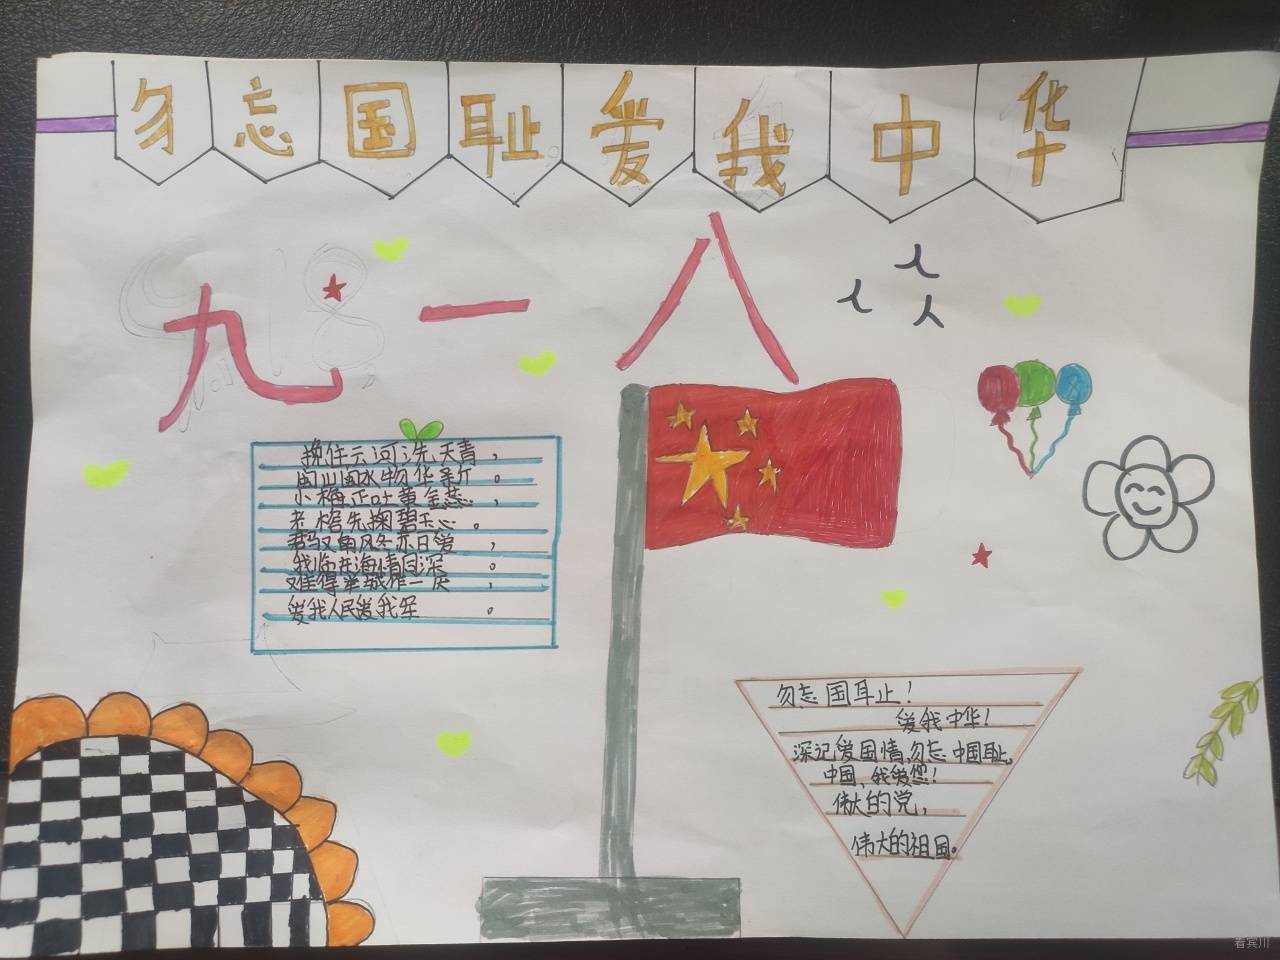 勿忘国耻爱我中华
九一八
挽住云河洗天青,
闽山闽水物华新。
小梅正吐黄金蕊,
老榕先掬碧玉心。
君驭南风冬亦日爱,
我临东海情同深。
难得举城作一庆,
爱我人民爱我军。
勿忘国耳止!
爱我中华!
深记爱国情,勿忘中国耻,
中国,我爱您!
伟大的党,
伟大的祖国。
看宾川